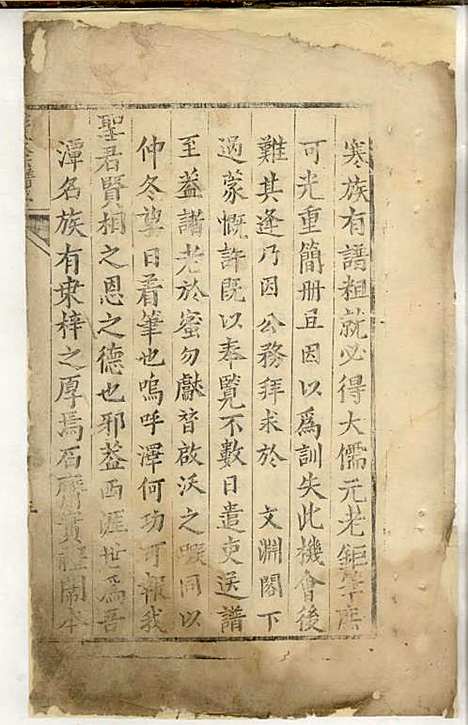 寒族有譜粗就必得大儒元老鉅筆庶
可光重簡冊且因以爲訓失此機會後
難其逢乃因公務拜求於 文淵閣下
過蒙慨許旣以奉覽不數日遣吏送譜
至葢譜老於蜜勿獻替啟沃之暇同以
仲冬望日着筆也嗚呼澤何功可報我
聖君賢相之恩之德也邪葢西涯世爲吾
潭名族有桑梓之厚焉石